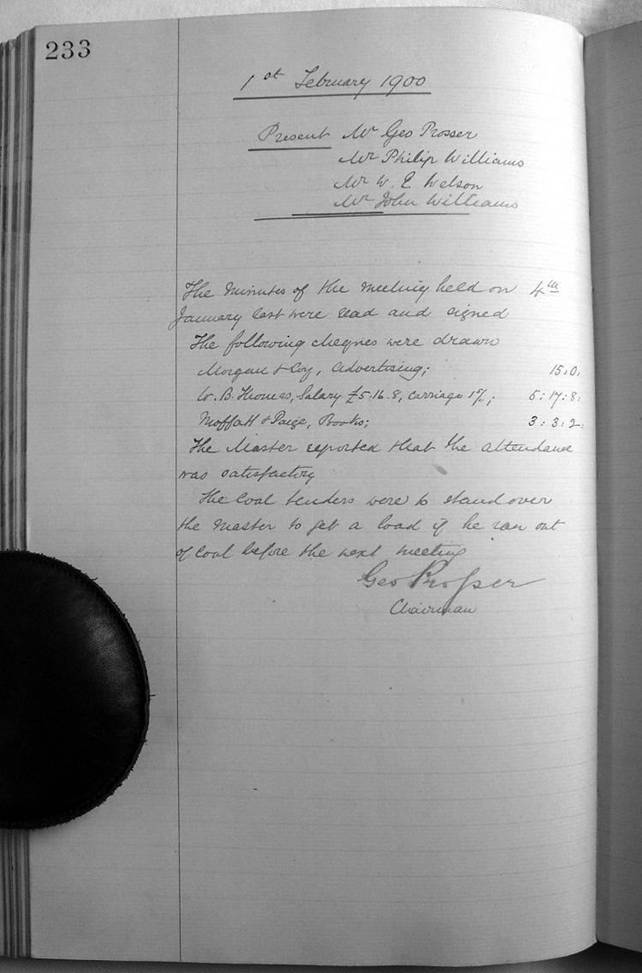 233
1st February 1900
Present Mr Geo Prosser
Mr Philip Williams
Mr W. E. Welson
Mr John Williams
The Minutes of the meeting held on 4th
January last were read and signed
The following cheques were drawn
Morgan & Coy, Advertising; 15.0.
W. B. Thomas, Salary £5.16.8, Carriage 1/; 5:17:8:
Moffatt & Paige, Books; 3:3:2.
The Master reported that the attendance
was satisfactory
The Coal tenders were to stand over
the master to get a load if he ran out
of Coal before the next meeting
Geo Prosser
Chairman